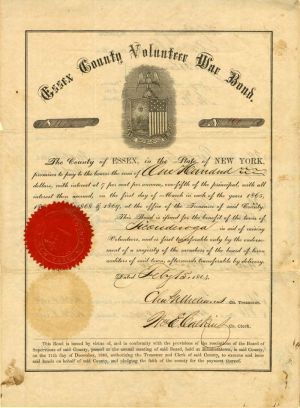 Essex County Volunteer War Bond.
The County of ESSEX, in the State of NEW YORK,
promises to pay to the bearer the sum of One Hundred
dollars, with interest at 7 per cent per annum, one-fifth of the principal, with all
interest then accrued, on the first day of March in each of the years 1865,
1868 & 1869, at the office of the Treasurer of said County.
This Bond is issued for the benefit of the town of
Ticonderoga in aid of raising
Volunteers, and is first transferable only by the endorse-
ment of a majority of the members of the board of town
auditors of said town, afterwards transferable by delivery.
Dated Feby 15 1864
Co. Treasurer.
Co. Clerk.
This Bond is issued by virtue of, and in conformity with the provisions of the resolution of the Board of
Supervisors of said County, passed at the annual meeting of said Board, held at Elizabethtown, in said County,
on the 11th day of December, 1863, authorizing the Treasurer and Clerk of said County, to execute and issue
said bonds on behalf of said County, and pledging the faith of the county for the payment thereof.